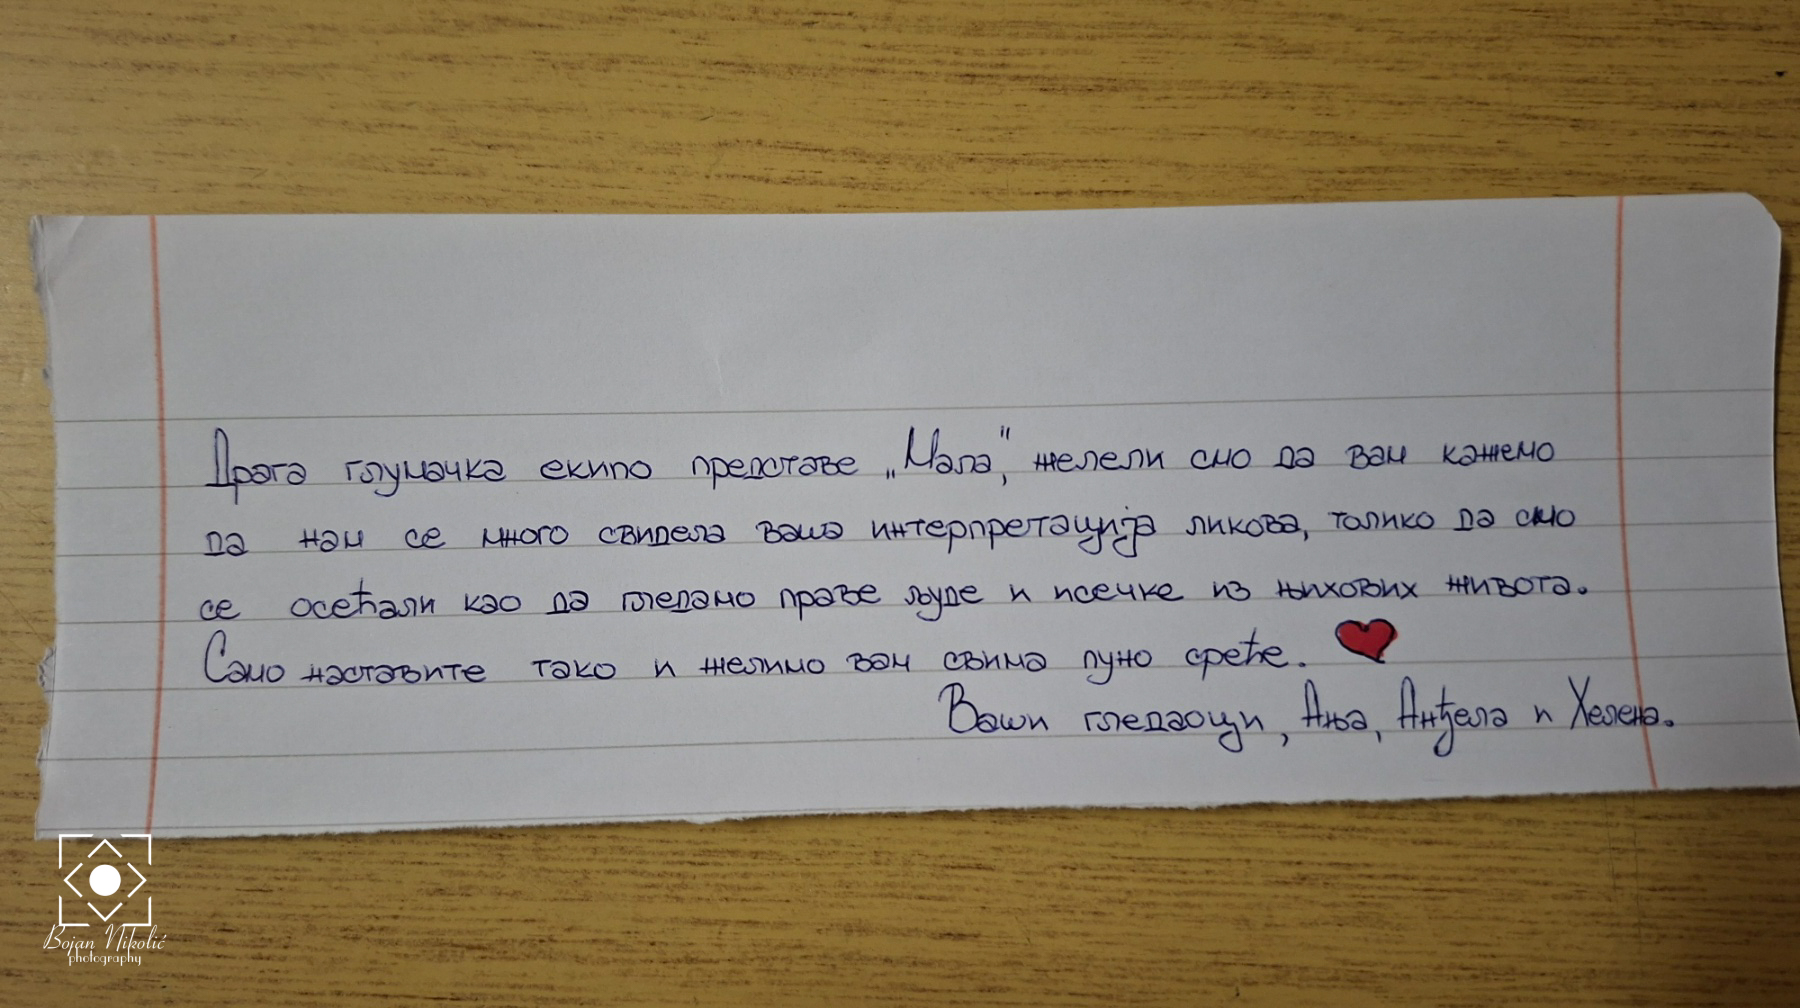 Драга глумачка екипо представе „Мала“, желели смо да вам кажемо
да нам се много свидела ваша интерпретација ликова, толико да смо
се осећали као да гледамо праве људе и исечке из њихових живота.
Само наставите тако и желимо вам свима пуно среће.
Ваши гледаоци, Ања, Анђела и Хелена.
Bojan Nikolić
photography